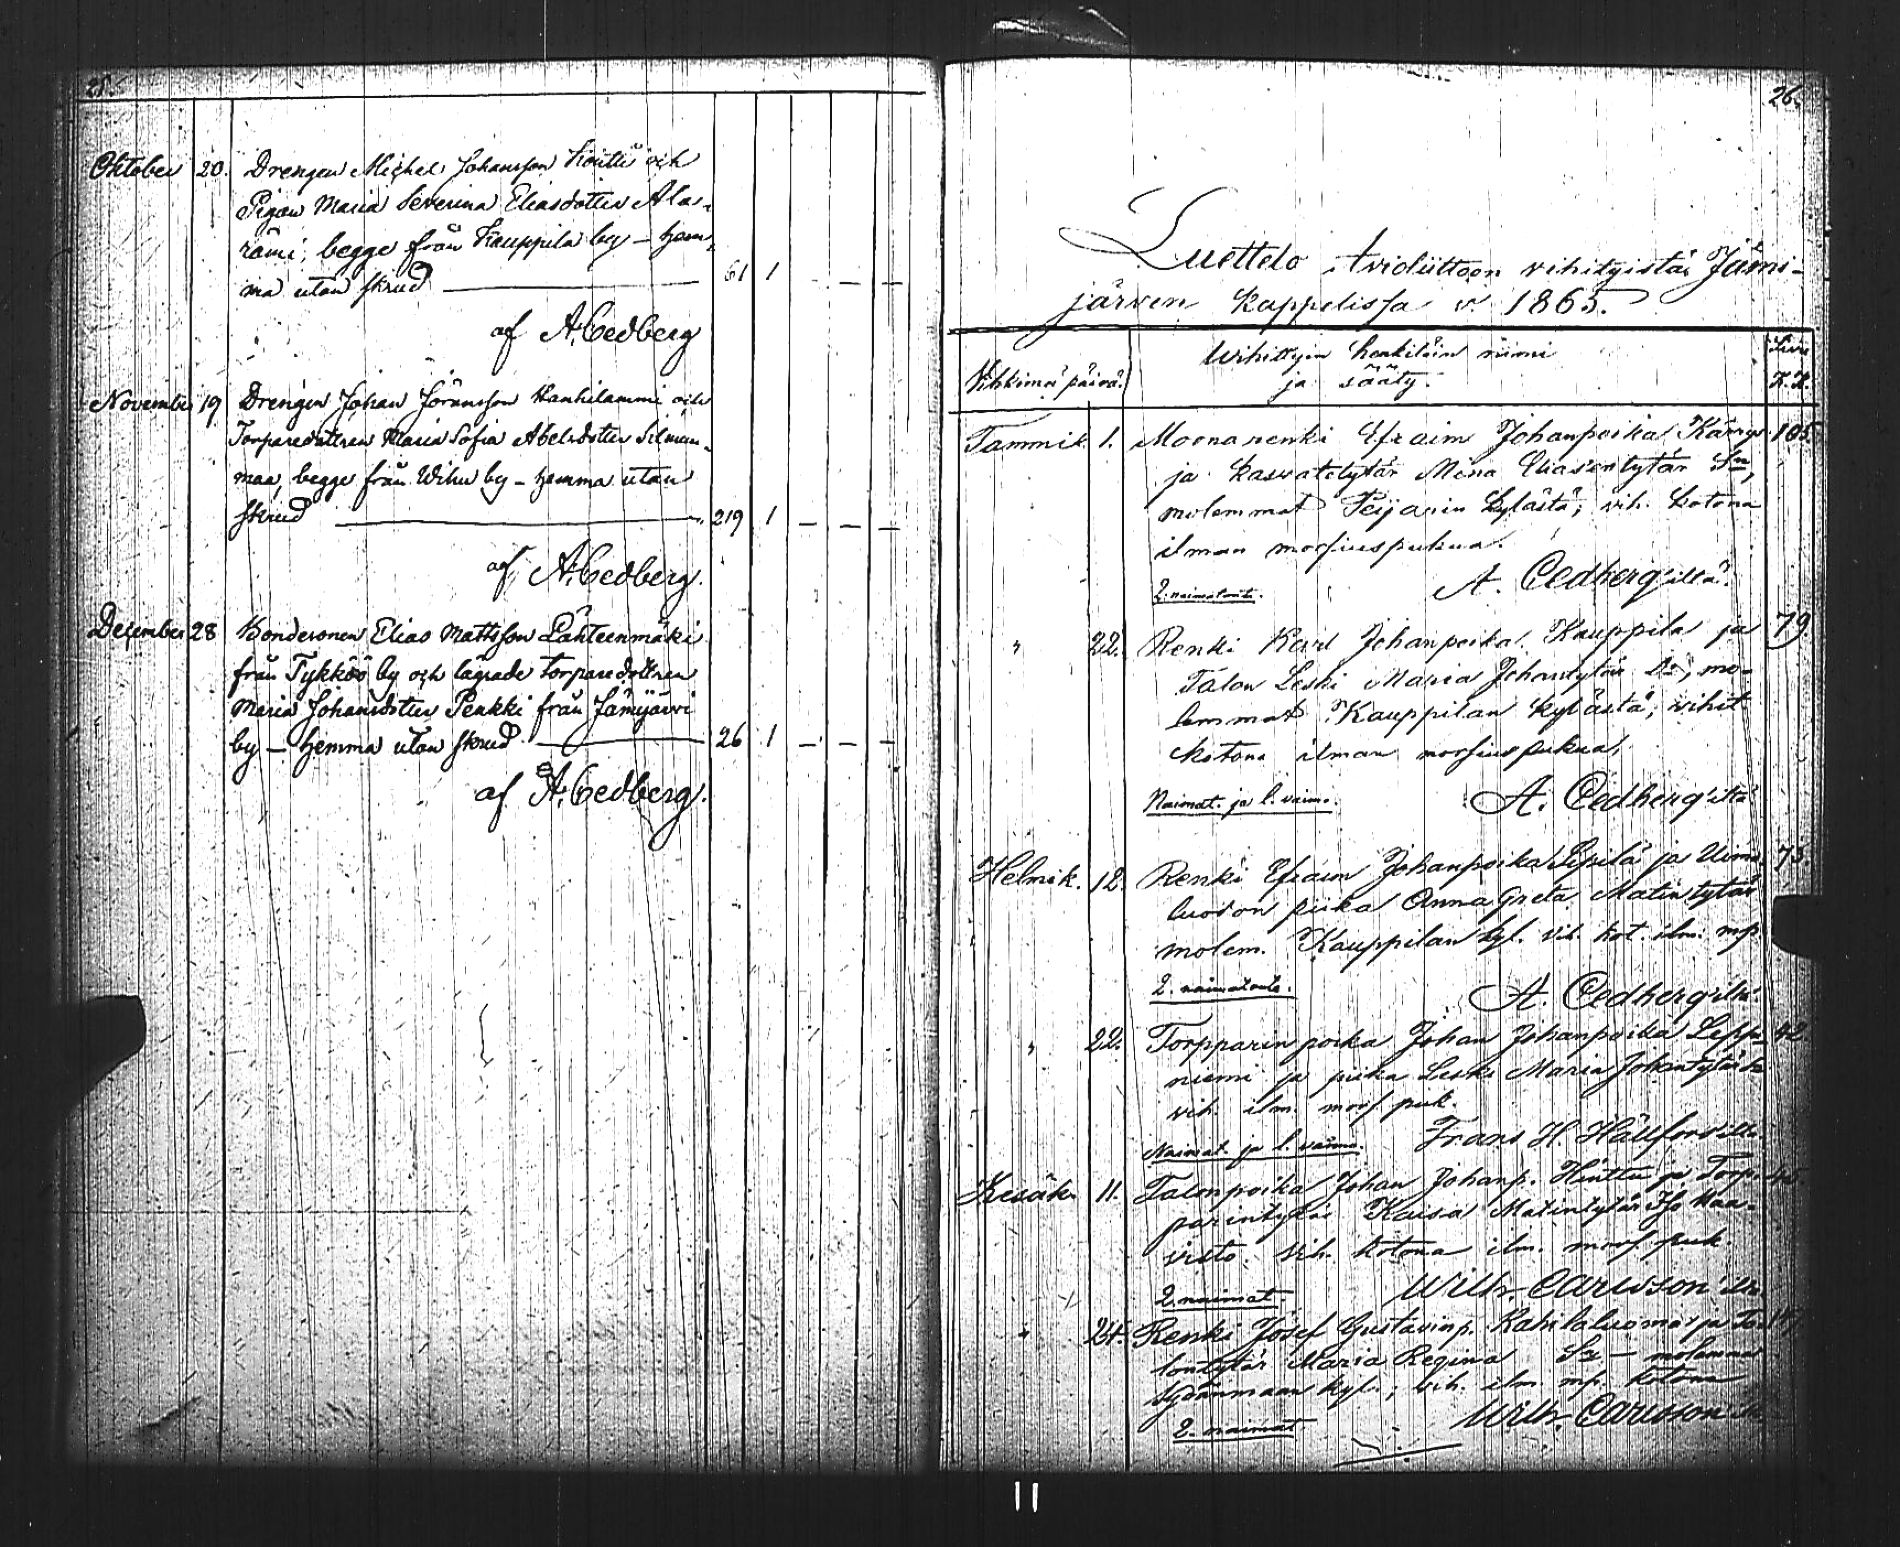 25.
Oktober 20. Drengen Michel Johansson Koutti och
Pigan Maria Severina Eliasdotter Alas-
rämi, begge från Kauppila by – hem-
ma utan skrud — 61 1 – – –
af A. Cedberg
November 19 Drengen Johan Göransson Hanhilammi och
Torparedottren Maria Sofia Abelsdotter Silmun-
maa, begge från Wihu by – hemma utan
skrud — 219 1 – – –
af A. Cedberg.
December 28 Bondesonen Elias Mattsson Lähteenmäki
från Tykköö by och lägrade torparedottren
Maria Johansdotter Penkki från Jämijärvi
by – hemma utan skrud — 26 1 – – –
af A. Cedberg.
26.
Luettelo Avioliittoon vihityistä Jämi-
järven Kappelissa v. 1865.
Vihkimä päivä. Wihittyin henkilöin nimi
ja sääty. Sivu
K.K.
Tammik. 1. Moonarenki Efraim Johanpoika Kärry 105.
ja kasvatetytär Mina Eliasentytär
molemmat Peijarin kylästä; vih. kotona
ilman morsiuspukua.
2. naimatonta. A. Cedberg'iltä.
" 22. Renki Karl Johanpoika Kauppila ja 79.
Talon Leski Maria Johantytär D:o, mo-
lemmat Kauppilan kylästä; vihit.
kotona ilman morsiuspukua.
Naimat. ja l. vaimo. A. Cedberg'iltä
Helmik. 12. Renki Efraim Johanpoika Sipilä ja 73.
luodon piika Anna Greta Matintytär
molem. Kauppilan kyl. vih. kot. ilm. mp.
2. naimatonta. A. Cedberg'iltä.
" 22. Torpparin poika Johan Johanpoika Leppä- 42
niemi ja piika Leski Maria Johantytär
vih. ilm. mors. puk.
Naimat. ja l. vaimo. Frans H. Hällfors'ilta.
Kesäk. 11. Talonpoika Johan Johanp. Hinttu ja Torp- 45.
parintytär Kaisa Matintytär Iso Haa-
visto vih. kotona ilm. mors. puk.
2. naimat. Wilh. Carlsson'ilta
" 24. Renki Josef Gustavinp. Kahilaluoma ja Ta-
lontytär Maria Regina – molemmat
Sydänmaan kyl.; vih. ilm. mp. kotona
2. naimat. Wilh. Carlsson
11